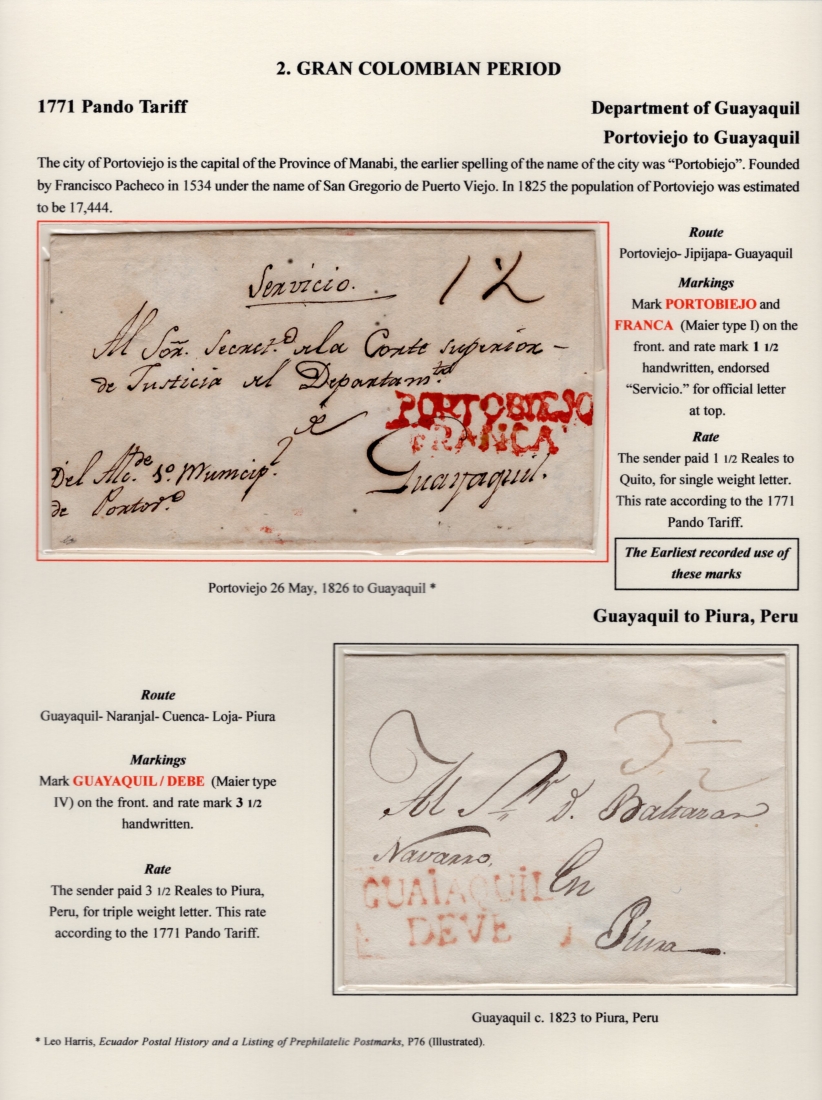 2. GRAN COLOMBIAN PERIOD
1771 Pando Tariff
Department of Guayaquil
Portoviejo to Guayaquil
The city of Portoviejo is the capital of the Province of Manabi, the earlier spelling of the name of the city was “Portobiejo”. Founded
by Francisco Pacheco in 1534 under the name of San Gregorio de Puerto Viejo. In 1825 the population of Portoviejo was estimated
to be 17,444.
Servicio.
Al Soñr. Secret.º
la Corte superior –
de Justicia
Departam.to
PORTOBIEJO
FRANCA
Guayaquil.
Del Alc.de 1º. Municip.l
de Portov.o
Portoviejo 26 May, 1826 to Guayaquil *
Route
Portoviejo- Jipijapa- Guayaquil
Markings
Mark PORTOBIEJO and
FRANCA (Maier type I) on the
front. and rate mark 1 1/2
handwritten, endorsed
“Servicio.” for official letter
at top.
Rate
The sender paid 1 1/2 Reales to
Quito, for single weight letter.
This rate according to the 1771
Pando Tariff.
The Earliest recorded use of
these marks
Guayaquil to Piura, Peru
Route
Guayaquil- Naranjal- Cuenca- Loja- Piura
Markings
Mark GUAYAQUIL / DEBE (Maier type
IV) on the front. and rate mark 3 1/2
handwritten.
Rate
The sender paid 3 1/2 Reales to Piura,
Peru, for triple weight letter. This rate
according to the 1771 Pando Tariff.
3 1/2
Al Sr. d. Baltazar
Navarro,
En
GUAIAQUIL
DEVE
Piura
Guayaquil c. 1823 to Piura, Peru
* Leo Harris, Ecuador Postal History and a Listing of Prephilatelic Postmarks, P76 (Illustrated).